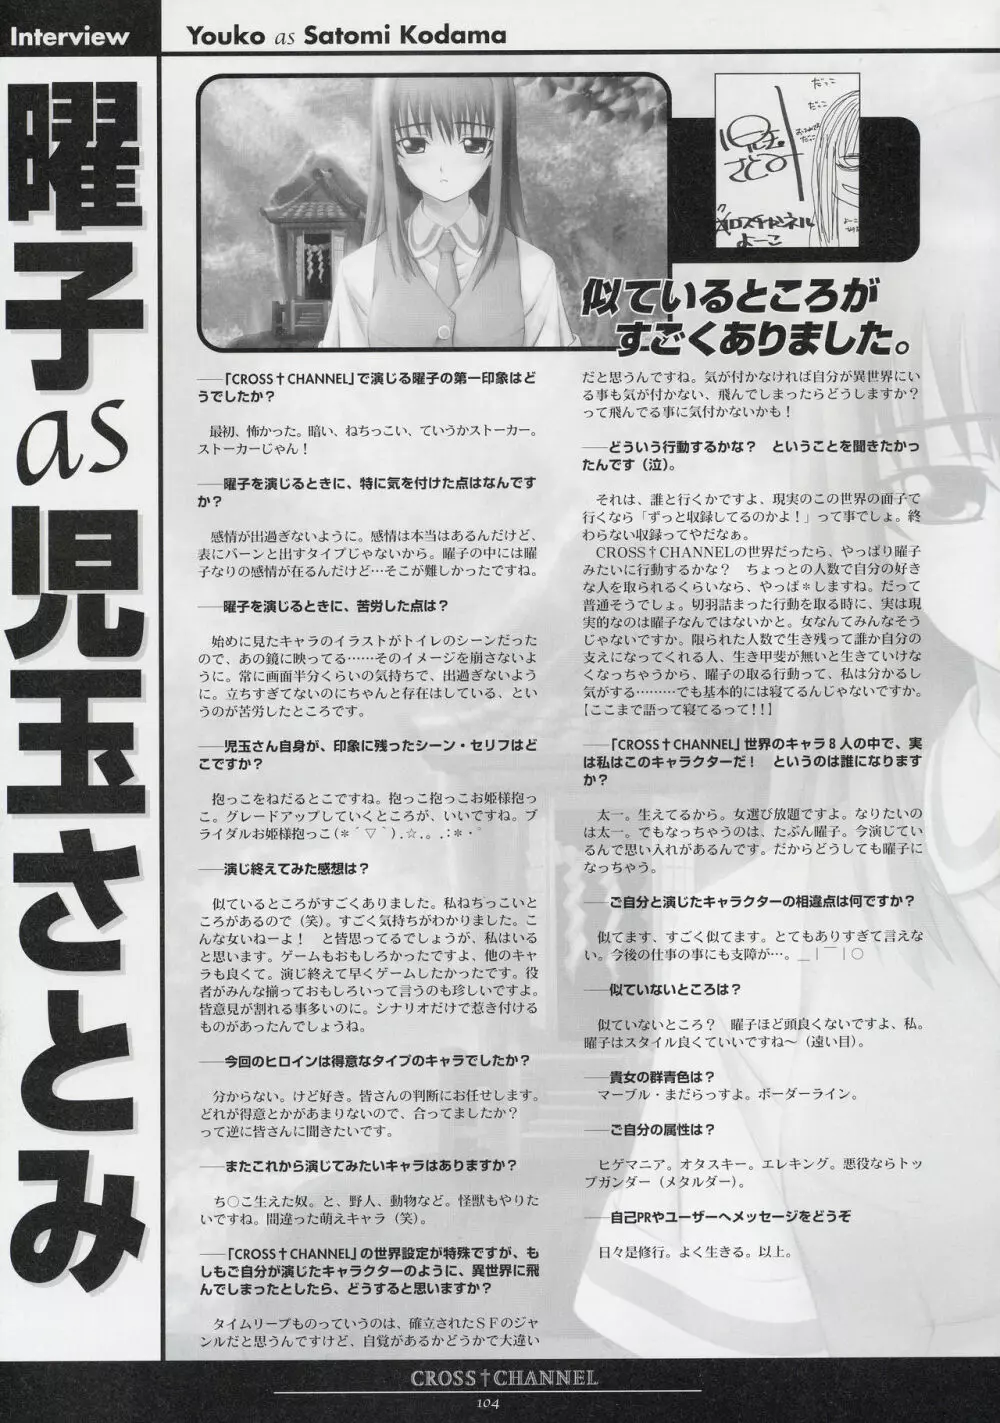 Interview
Youko as Satomi Kodama
曜子as児玉さとみ
だっこ
だっこ
児玉さとみ
クロスチャンネル
よーこ
似ているところが
すごくありました。
――「CROSS†CHANNEL」で演じる曜子の第一印象はど
うでしたか?
最初、怖かった。暗い、ねちっこい、ていうかストーカー。
ストーカーじゃん!
――曜子を演じるときに、特に気を付けた点はなんです
か?
感情が出過ぎないように。感情は本当はあるんだけど、
表にバーンと出すタイプじゃないから。曜子の中には曜
子なりの感情が在るんだけど…そこが難しかったですね。
――曜子を演じるときに、苦労した点は?
始めに見たキャラのイラストがトイレのシーンだった
ので、あの鏡に映ってる……そのイメージを崩さないよ
うに。常に画面半分くらいの気持ちで、出過ぎないよう
に。立ちすぎてないのにちゃんと存在はしている、とい
うのが苦労したところです。
――児玉さん自身が、印象に残ったシーン・セリフはど
こですか?
抱っこをねだるとこですね。抱っこ抱っこお姫様抱っ
こ。グレードアップしていくところが、いいですね。ブ
ライダルお姫様抱っこ(*´▽`).☆.。.:*・゜
――演じ終えてみた感想は?
似ているところがすごくありました。私ねちっこいと
ころがあるので(笑)。すごく気持ちがわかりました。こ
んな女いねーよ! と皆思ってるでしょうが、私はいる
と思います。ゲームもおもしろかったですよ、他のキャ
ラも良くて。演じ終えて早くゲームしたかったです。役
者がみんな揃っておもしろいって言うのも珍しいですよ。
皆意見が割れる事多いのに。シナリオだけで惹き付ける
ものがあったんでしょうね。
――今回のヒロインは得意なタイプのキャラでしたか?
分からない。けど好き。皆さんの判断にお任せします。
どれが得意とかがあまりないので、合ってましたか?
って逆に皆さんに聞きたいです。
――またこれから演じてみたいキャラはありますか?
ち○こ生えた奴。と、野人、動物など。怪獣もやりた
いですね。間違った萌えキャラ(笑)。
――「CROSS†CHANNEL」の世界設定が特殊ですが、も
しもご自分が演じたキャラクターのように、異世界に飛
んでしまったとしたら、どうすると思いますか?
タイムリープものっていうのは、確立されたSFのジャ
ンルだと思うんですけど、自覚があるかどうかで大違い
だと思うんですね。気が付かなければ自分が異世界にい
る事も気が付かない、飛んでしまったらどうしますか?
って飛んでる事に気付かないかも!
――どういう行動するかな? ということを聞きたかっ
たんです(泣)。
それは、誰と行くかですよ、現実のこの世界の面子で
行くなら「ずっと収録してるのかよ!」って事でしょ。終
わらない収録ってやだなぁ。
CROSS†CHANNELの世界だったら、やっぱり曜子
みたいに行動するかな? ちょっとの人数で自分の好き
な人を取られるくらいなら、やっぱ*しますね。だって
普通そうでしょ。切羽詰まった行動を取る時に、実は現
実的なのは曜子なんではないかと。女なんてみんなそう
じゃないですか。限られた人数で生き残って誰か自分の
支えになってくれる人、生き甲斐が無いと生きていけな
くなっちゃうから、曜子の取る行動って、私は分かるし
気がする………でも基本的には寝てるんじゃないですか。
【ここまで語って寝てるって!!】
――「CROSS†CHANNEL」世界のキャラ8人の中で、実
は私はこのキャラクターだ! というのは誰になります
か?
太一。生えてるから。女選び放題ですよ。なりたいの
は太一。でもなっちゃうのは、たぶん曜子。今演じてい
るんで思い入れがあるんです。だからどうしても曜子に
なっちゃう。
――ご自分と演じたキャラクターの相違点は何ですか?
似てます、すごく似てます。とてもありすぎて言えな
い。今後の仕事の事にも支障が…。＿｜￣｜○
――似ていないところは?
似ていないところ? 曜子ほど頭良くないですよ、私。
曜子はスタイル良くていいですね～(遠い目)。
――貴女の群青色は?
マーブル・まだらっすよ。ボーダーライン。
――ご自分の属性は?
ヒゲマニア。オタスキー。エレキング。悪役ならトッ
プガンダー(メタルダー)。
――自己PRやユーザーへメッセージをどうぞ
日々是修行。よく生きる。以上。
CROSS†CHANNEL
104